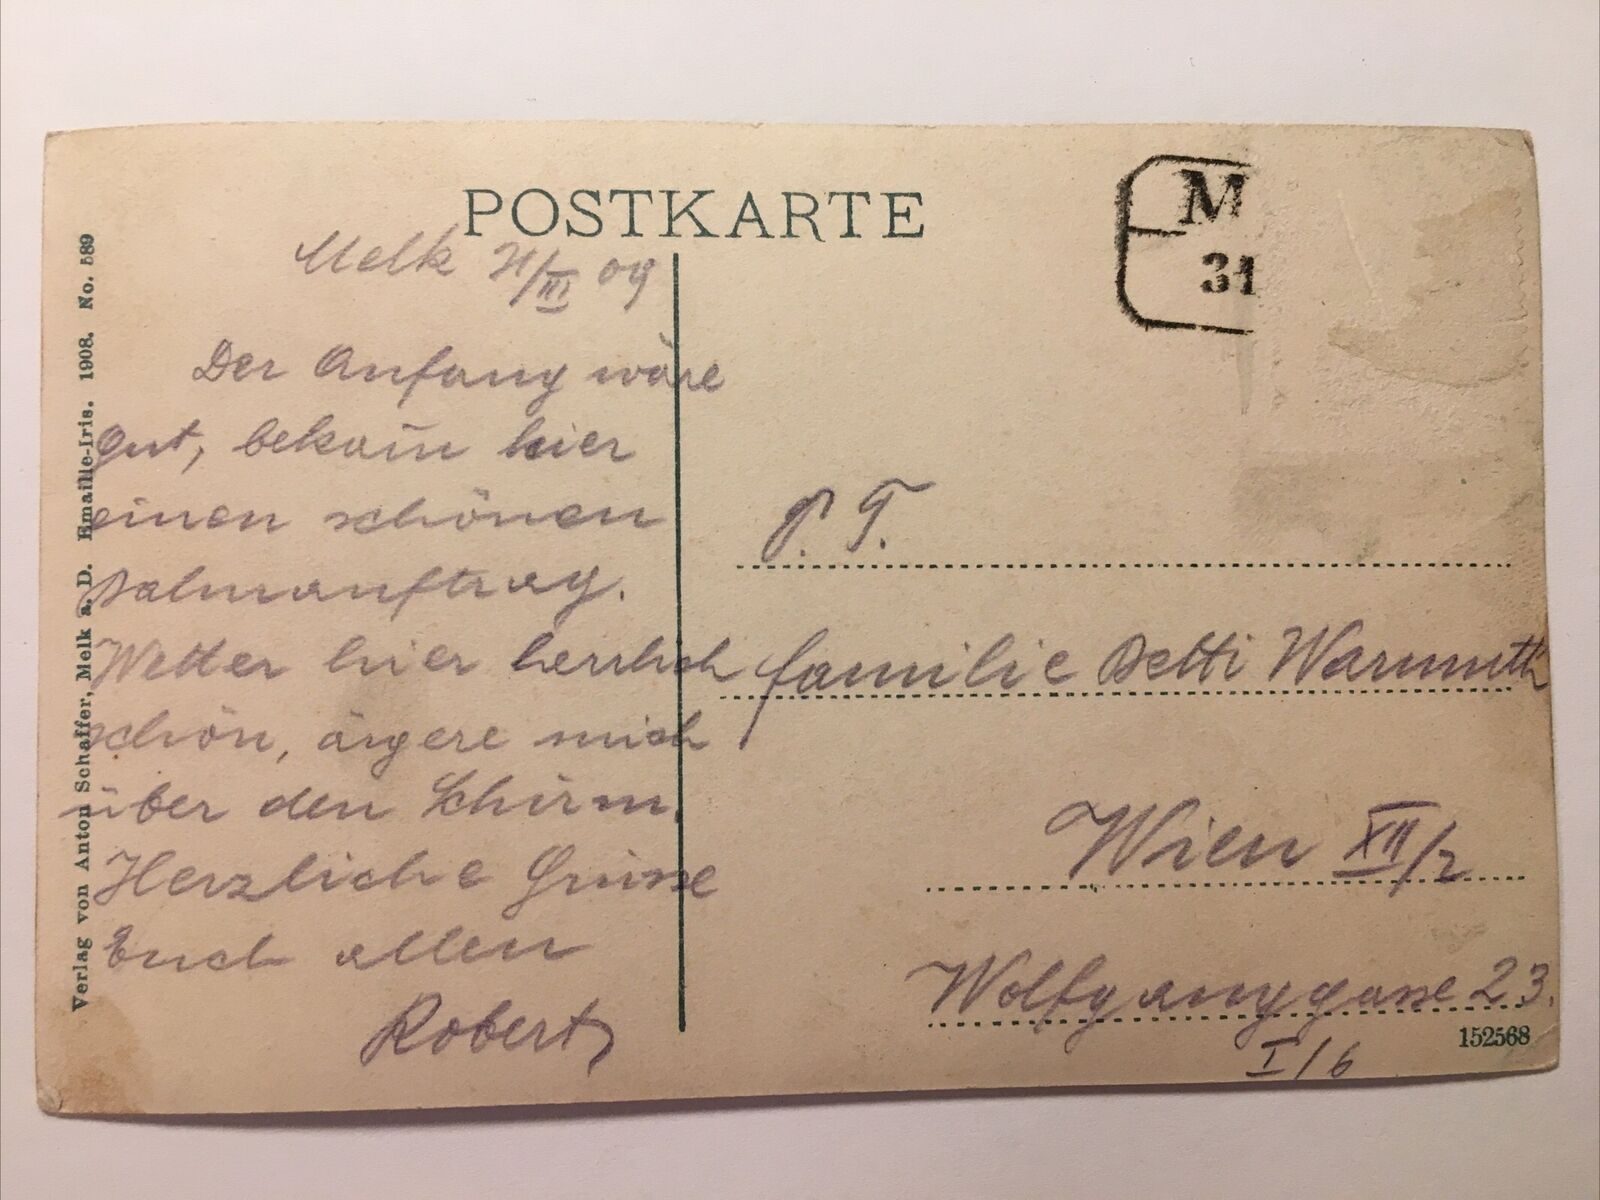 POSTKARTE
M
31
Melk 31/III 09
Der Anfang wäre
gut, bekom̄ hier
einen schönen
Wetter hier herrlich
schön, ärgere mich
über den Schirm.
Herzliche Grüsse
Euch allen
Robert
P. T.
Familie Betti Warmuth
Wien XII/2
Wolfganggasse 23.
I/6
152568
Verlag von Anton Schaffer, Melk a. D. Emaille-Iris. 1908. No. 589